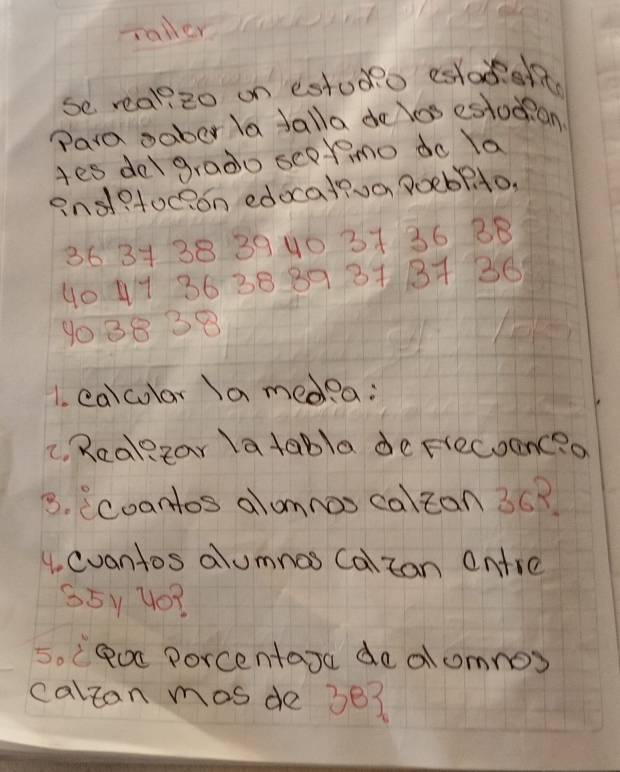 Taller
se realizo un estudio estadistico
Para saber la talla de los estudian
tes del grado septimo de la
institucion educativa Pueblito.
36 37 38 39 40 37 36 38
40 41 36 38 39 37 37 36
40 38 38
1. calcular la media:
2. Realizar la tabla de Frecuencia
3. ¿cuantos alumnos calzan 36?
4. Cuantos alumnos Calzan entre
35 y 40?
5. ¿Que Porcentaje de alumnos
calzan mas de 38?